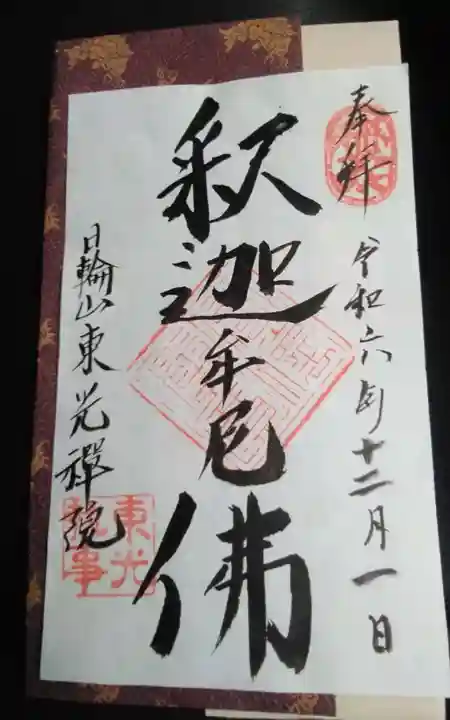 奉拝
令和六年十二月一日
釈迦牟尼佛
日輪山東光禅院
東光